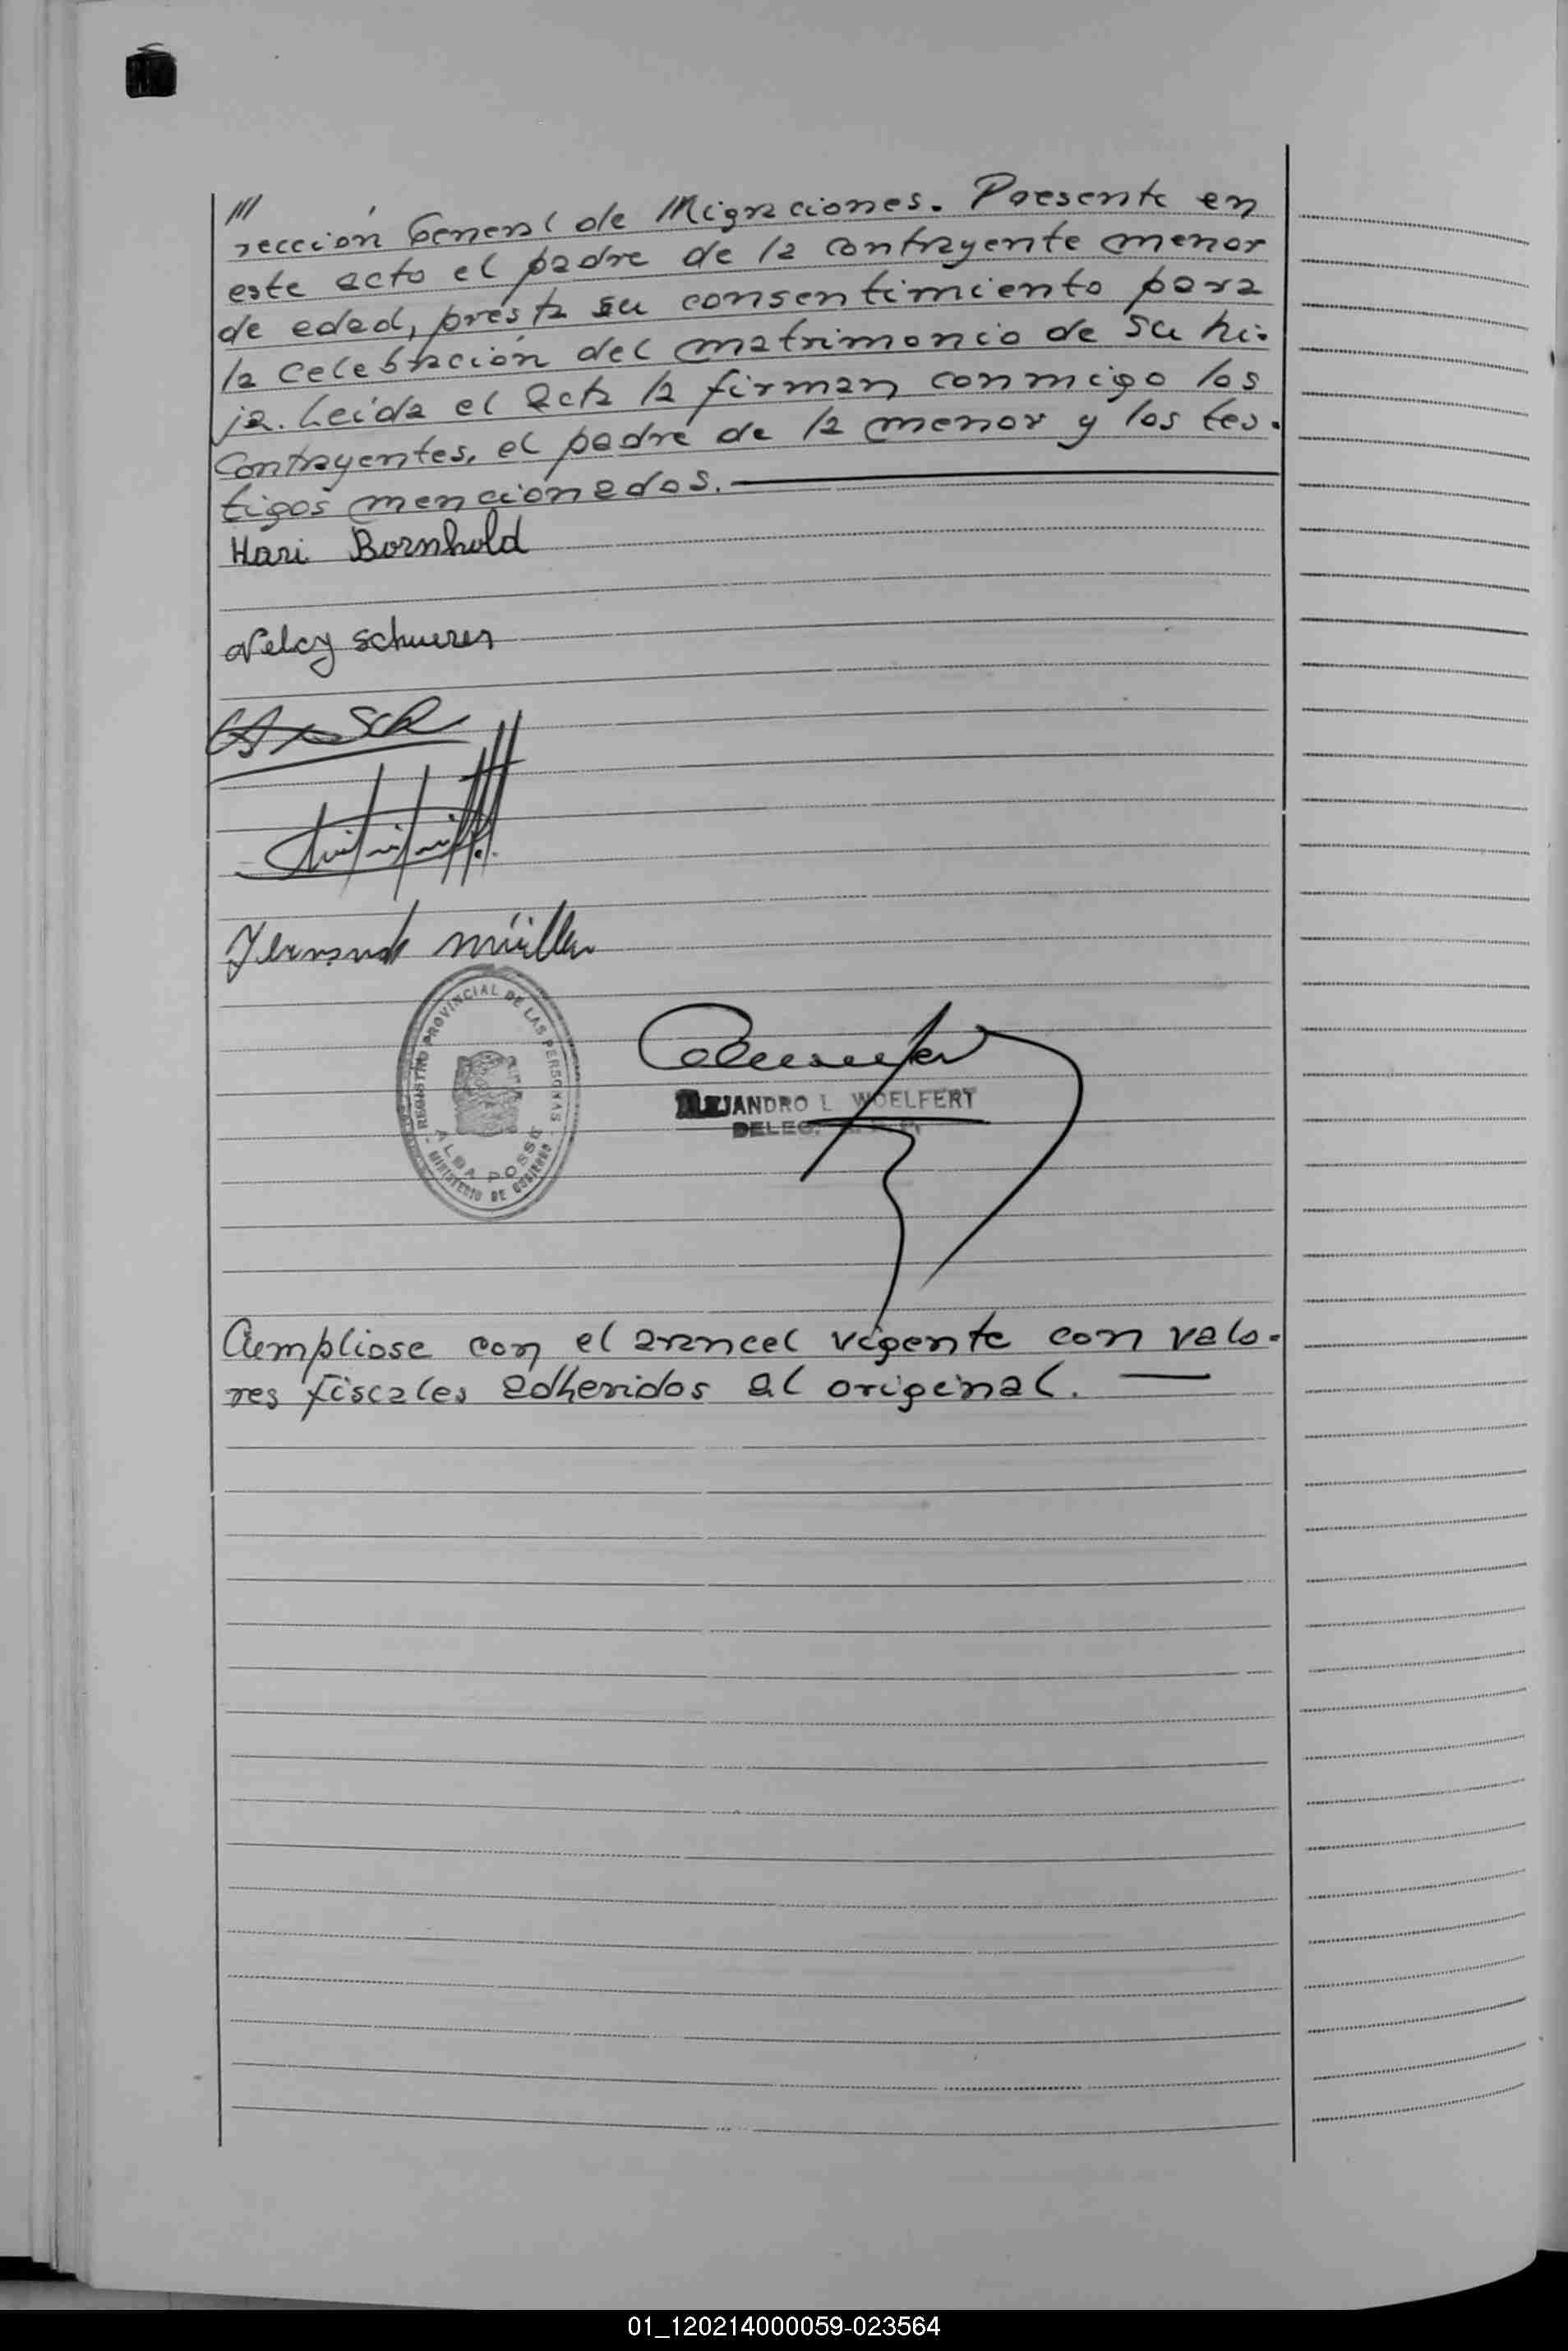 ///
rección General de Migraciones. Presente en
este acto el padre de la contrayente menor
de edad, presta su consentimiento para
la celebración del matrimonio de su hi-
ja. Leída el acta la firman conmigo los
contrayentes, el padre de la menor y los tes-
tigos mencionados.
Hari Bornhold
Nelcy Schuerer
Müller
REGISTRO PROVINCIAL DE LAS PERSONAS
ALBA POSSE
MINISTERIO DE GOBIERNO
ALEJANDRO L. WOELFERT
DELEG.
Cumpliose con el arancel vigente con valo-
res fiscales adheridos al original.
01_120214000059-023564